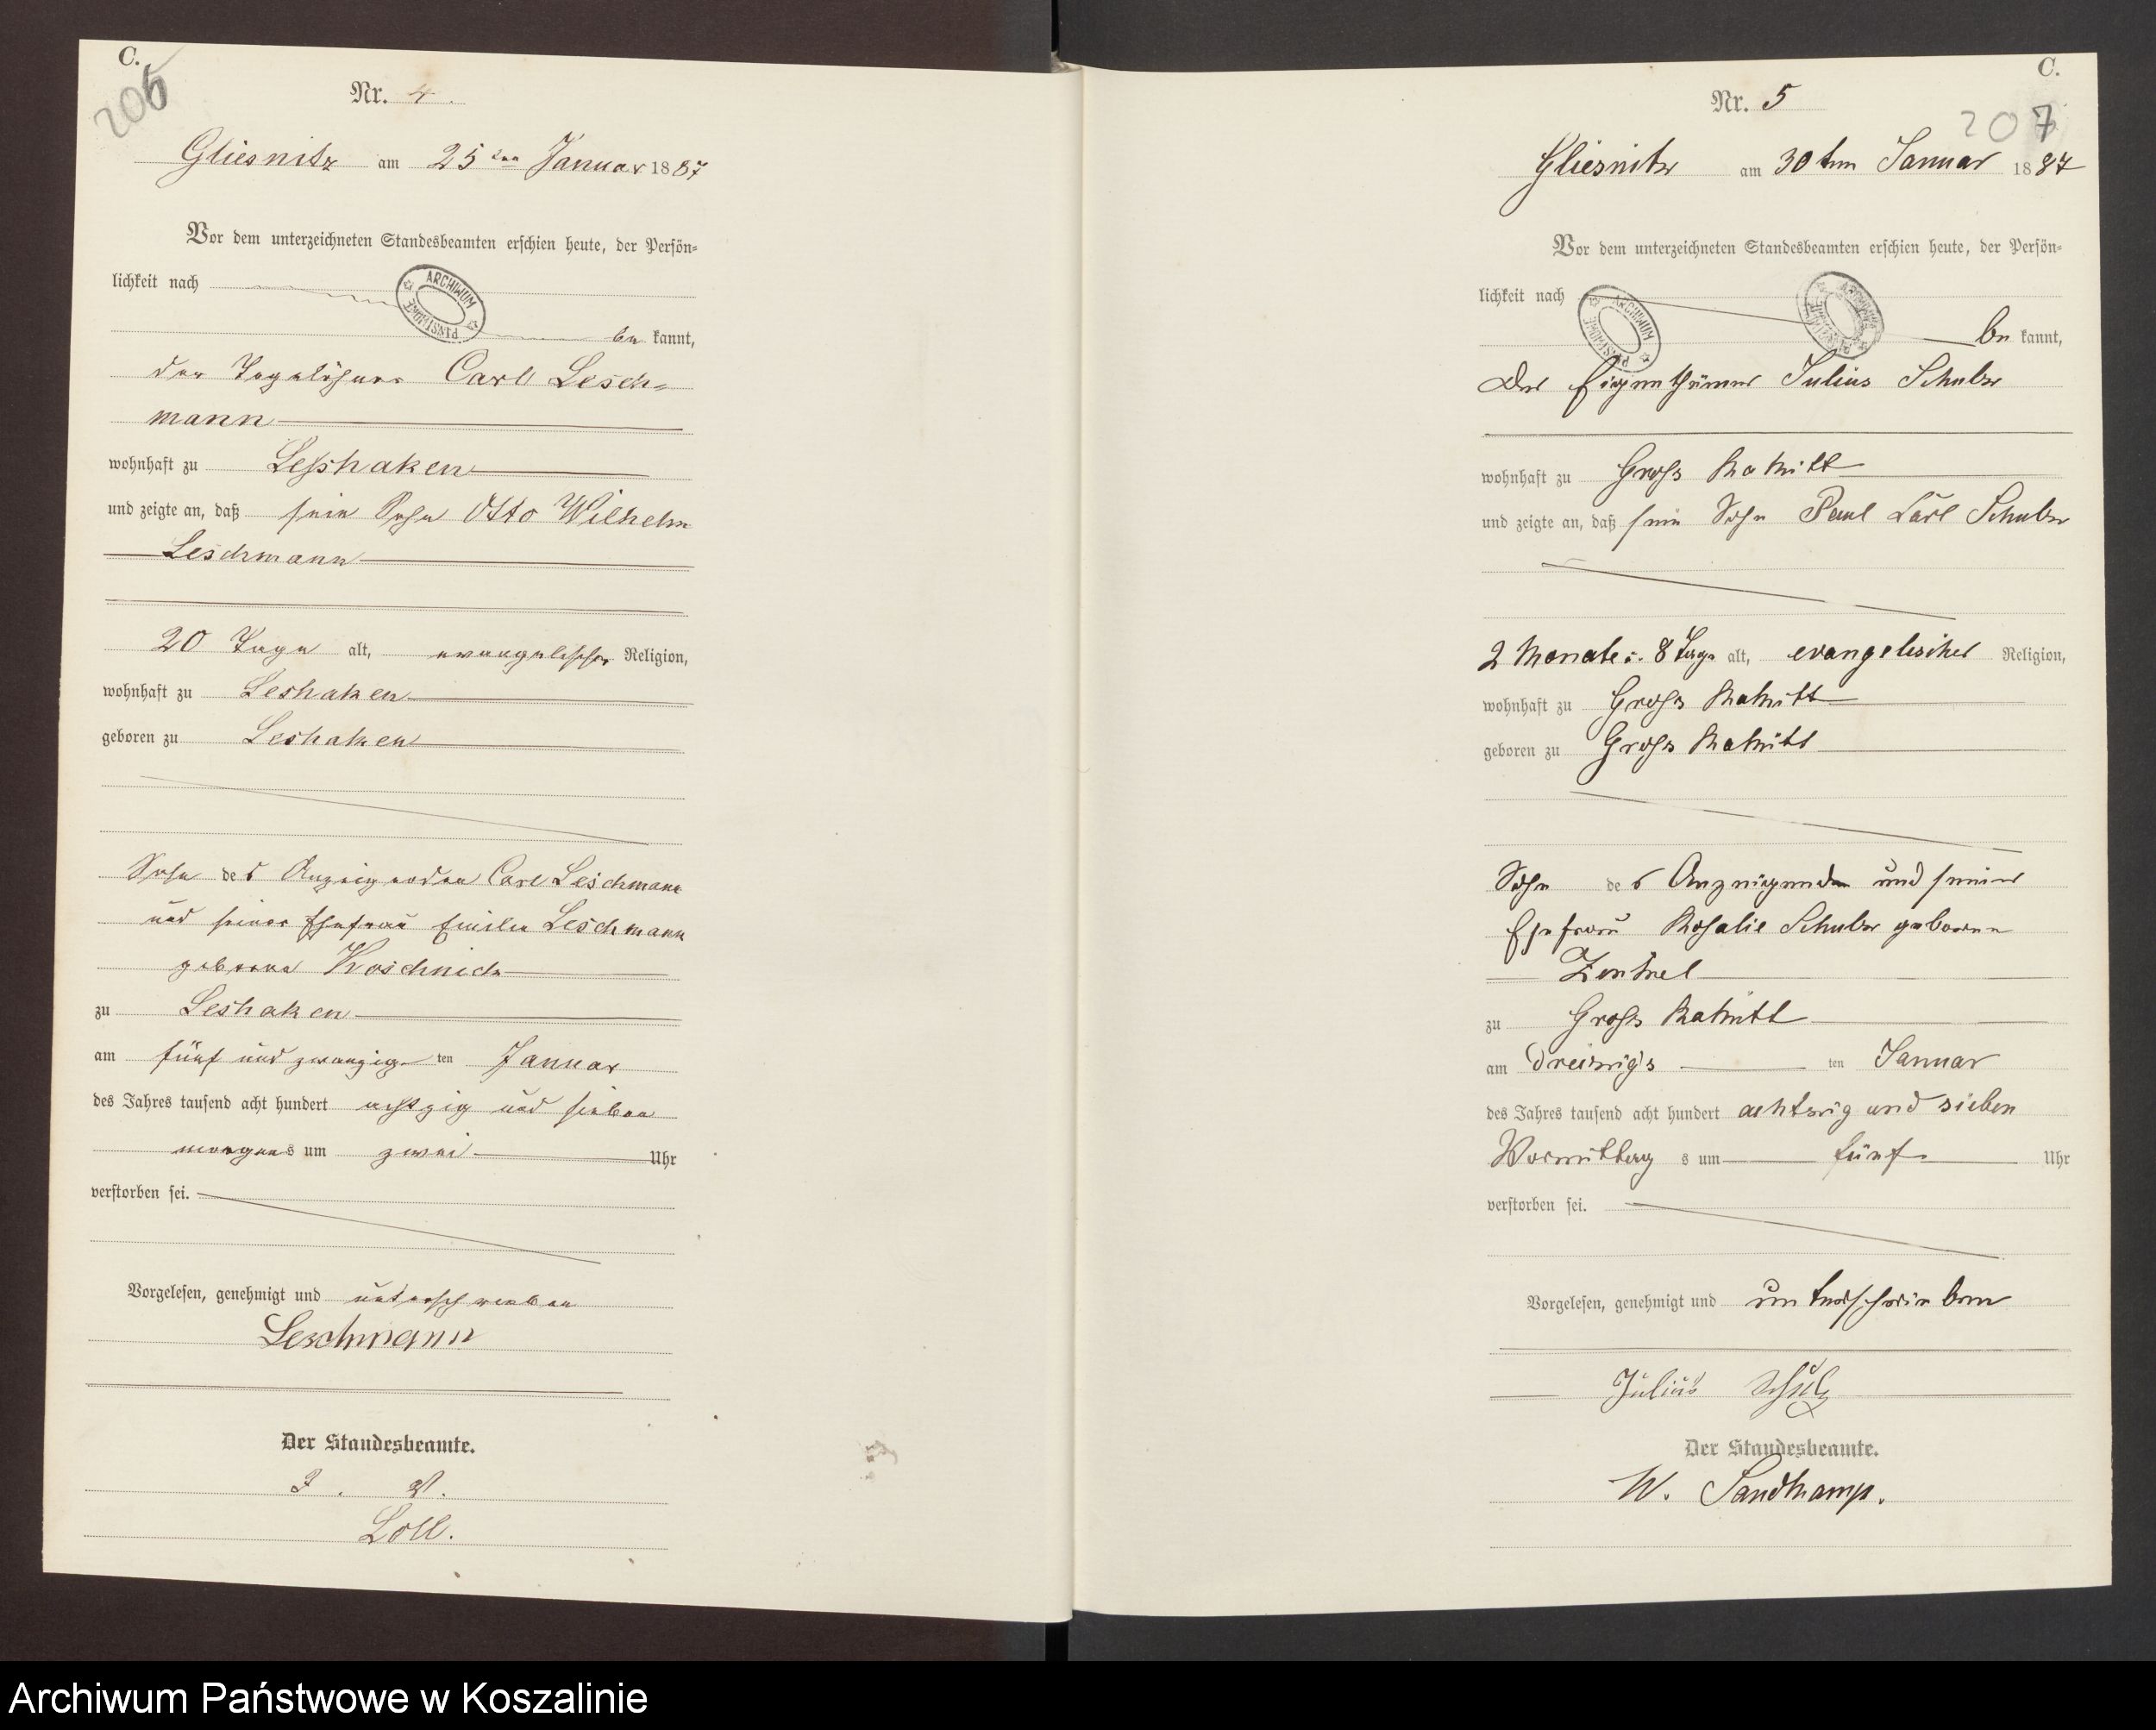 C.
206
Nr. 4.
Gliesnitz am 25 ten Januar 1887
Vor dem unterzeichneten Standesbeamten erschien heute, der Persön=
lichkeit nach
be kannt,
der Tagelöhner Carl Lesch=
mann
wohnhaft zu Leßhaken
und zeigte an, daß sein Sohn Otto Wilhelm
Leschmann
20 Tage alt, evangelischer Religion,
wohnhaft zu Leshaken
geboren zu Leshaken
Sohn des Anzeigenden Carl Leschmann
und seiner Ehefrau Emilie Leschmann
geborne Koschnick
zu Leshaken
am fünf und zwanzig ten Januar
des Jahres tausend acht hundert achtzig und sieben
morgens um zwei Uhr
verstorben sei.
Vorgelesen, genehmigt und unterschrieben
Leschmann
Der Standesbeamte.
Loll.
ARCHIWUM PAŃSTWOWE
C.
207
Nr. 5
Gliesnitz am 30 ten Januar 1887
Vor dem unterzeichneten Standesbeamten erschien heute, der Persön=
lichkeit nach
be kannt,
Der Eigenthümer Julius Schulz
wohnhaft zu Gross Rakitt
und zeigte an, daß sein Sohn Paul Carl Schulz
2 Monate u. 8 Tage alt, evangelischer Religion,
wohnhaft zu Gross Rakitt
geboren zu Gross Rakitt
Sohn des Anzeigenden und seiner
Ehefrau Rosalie Schulz geborene
zu Gross Rakitt
am dreizigs ten Januar
des Jahres tausend acht hundert achtzig und sieben
Vormittag s um fünf Uhr
verstorben sei.
Vorgelesen, genehmigt und unterschrieben
Julius Schulz
Der Standesbeamte.
W. Sandkamp.
ARCHIWUM PAŃSTWOWE
ARCHIWUM PAŃSTWOWE
Archiwum Państwowe w Koszalinie